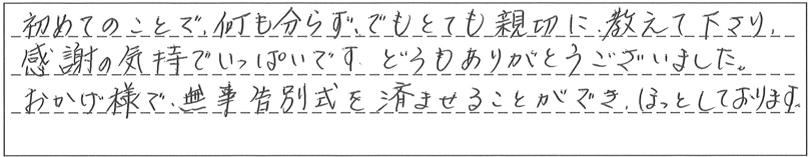 初めてのことで、何も分らず、でもとても親切に、教えて下さり、
感謝の気持でいっぱいです。どうもありがとうございました。
おかげ様で、無事告別式を済ませることができ、ほっとしております。